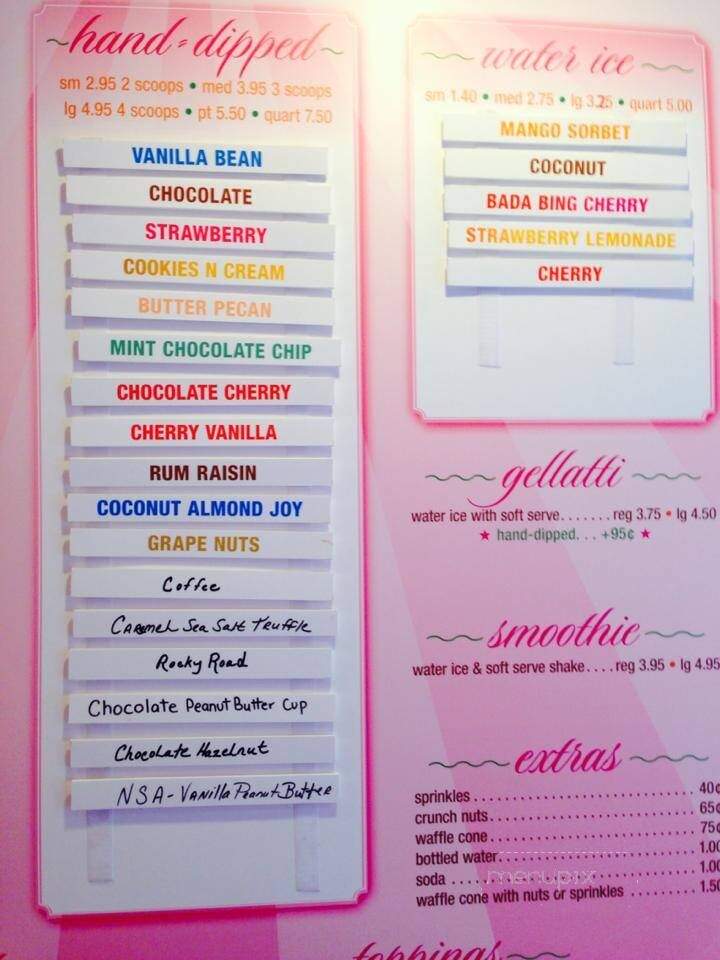 hand-dipped
sm 2.95 2 scoops • med 3.95 3 scoops
lg 4.95 4 scoops • pt 5.50 • quart 7.50
VANILLA BEAN
CHOCOLATE
STRAWBERRY
COOKIES N CREAM
BUTTER PECAN
MINT CHOCOLATE CHIP
CHOCOLATE CHERRY
CHERRY VANILLA
RUM RAISIN
COCONUT ALMOND JOY
GRAPE NUTS
Coffee
Caramel Sea Salt Truffle
Rocky Road
Chocolate Peanut Butter Cup
Chocolate Hazelnut
NSA - Vanilla Peanut Butter
water ice
sm 1.40 • med 2.75 • lg 3.25 • quart 5.00
MANGO SORBET
COCONUT
BADA BING CHERRY
STRAWBERRY LEMONADE
CHERRY
gellatti
water ice with soft serve....... reg 3.75 • lg 4.50
★ hand-dipped. . . +95¢ ★
smoothie
water ice & soft serve shake.... reg 3.95 • lg 4.95
extras
sprinkles ........ 40¢
crunch nuts........ 65¢
waffle cone........ 75¢
bottled water........ 1.00
soda ........ 1.00
waffle cone with nuts or sprinkles ........ 1.50
menupix
toppings